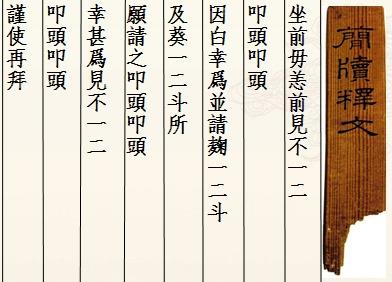 簡牘釋文
坐前毋恙前見不一二
叩頭叩頭
因白幸爲並請麴一二斗
及葵一二斗所
願請之叩頭叩頭
幸甚爲見不一二
叩頭叩頭
謹使再拜